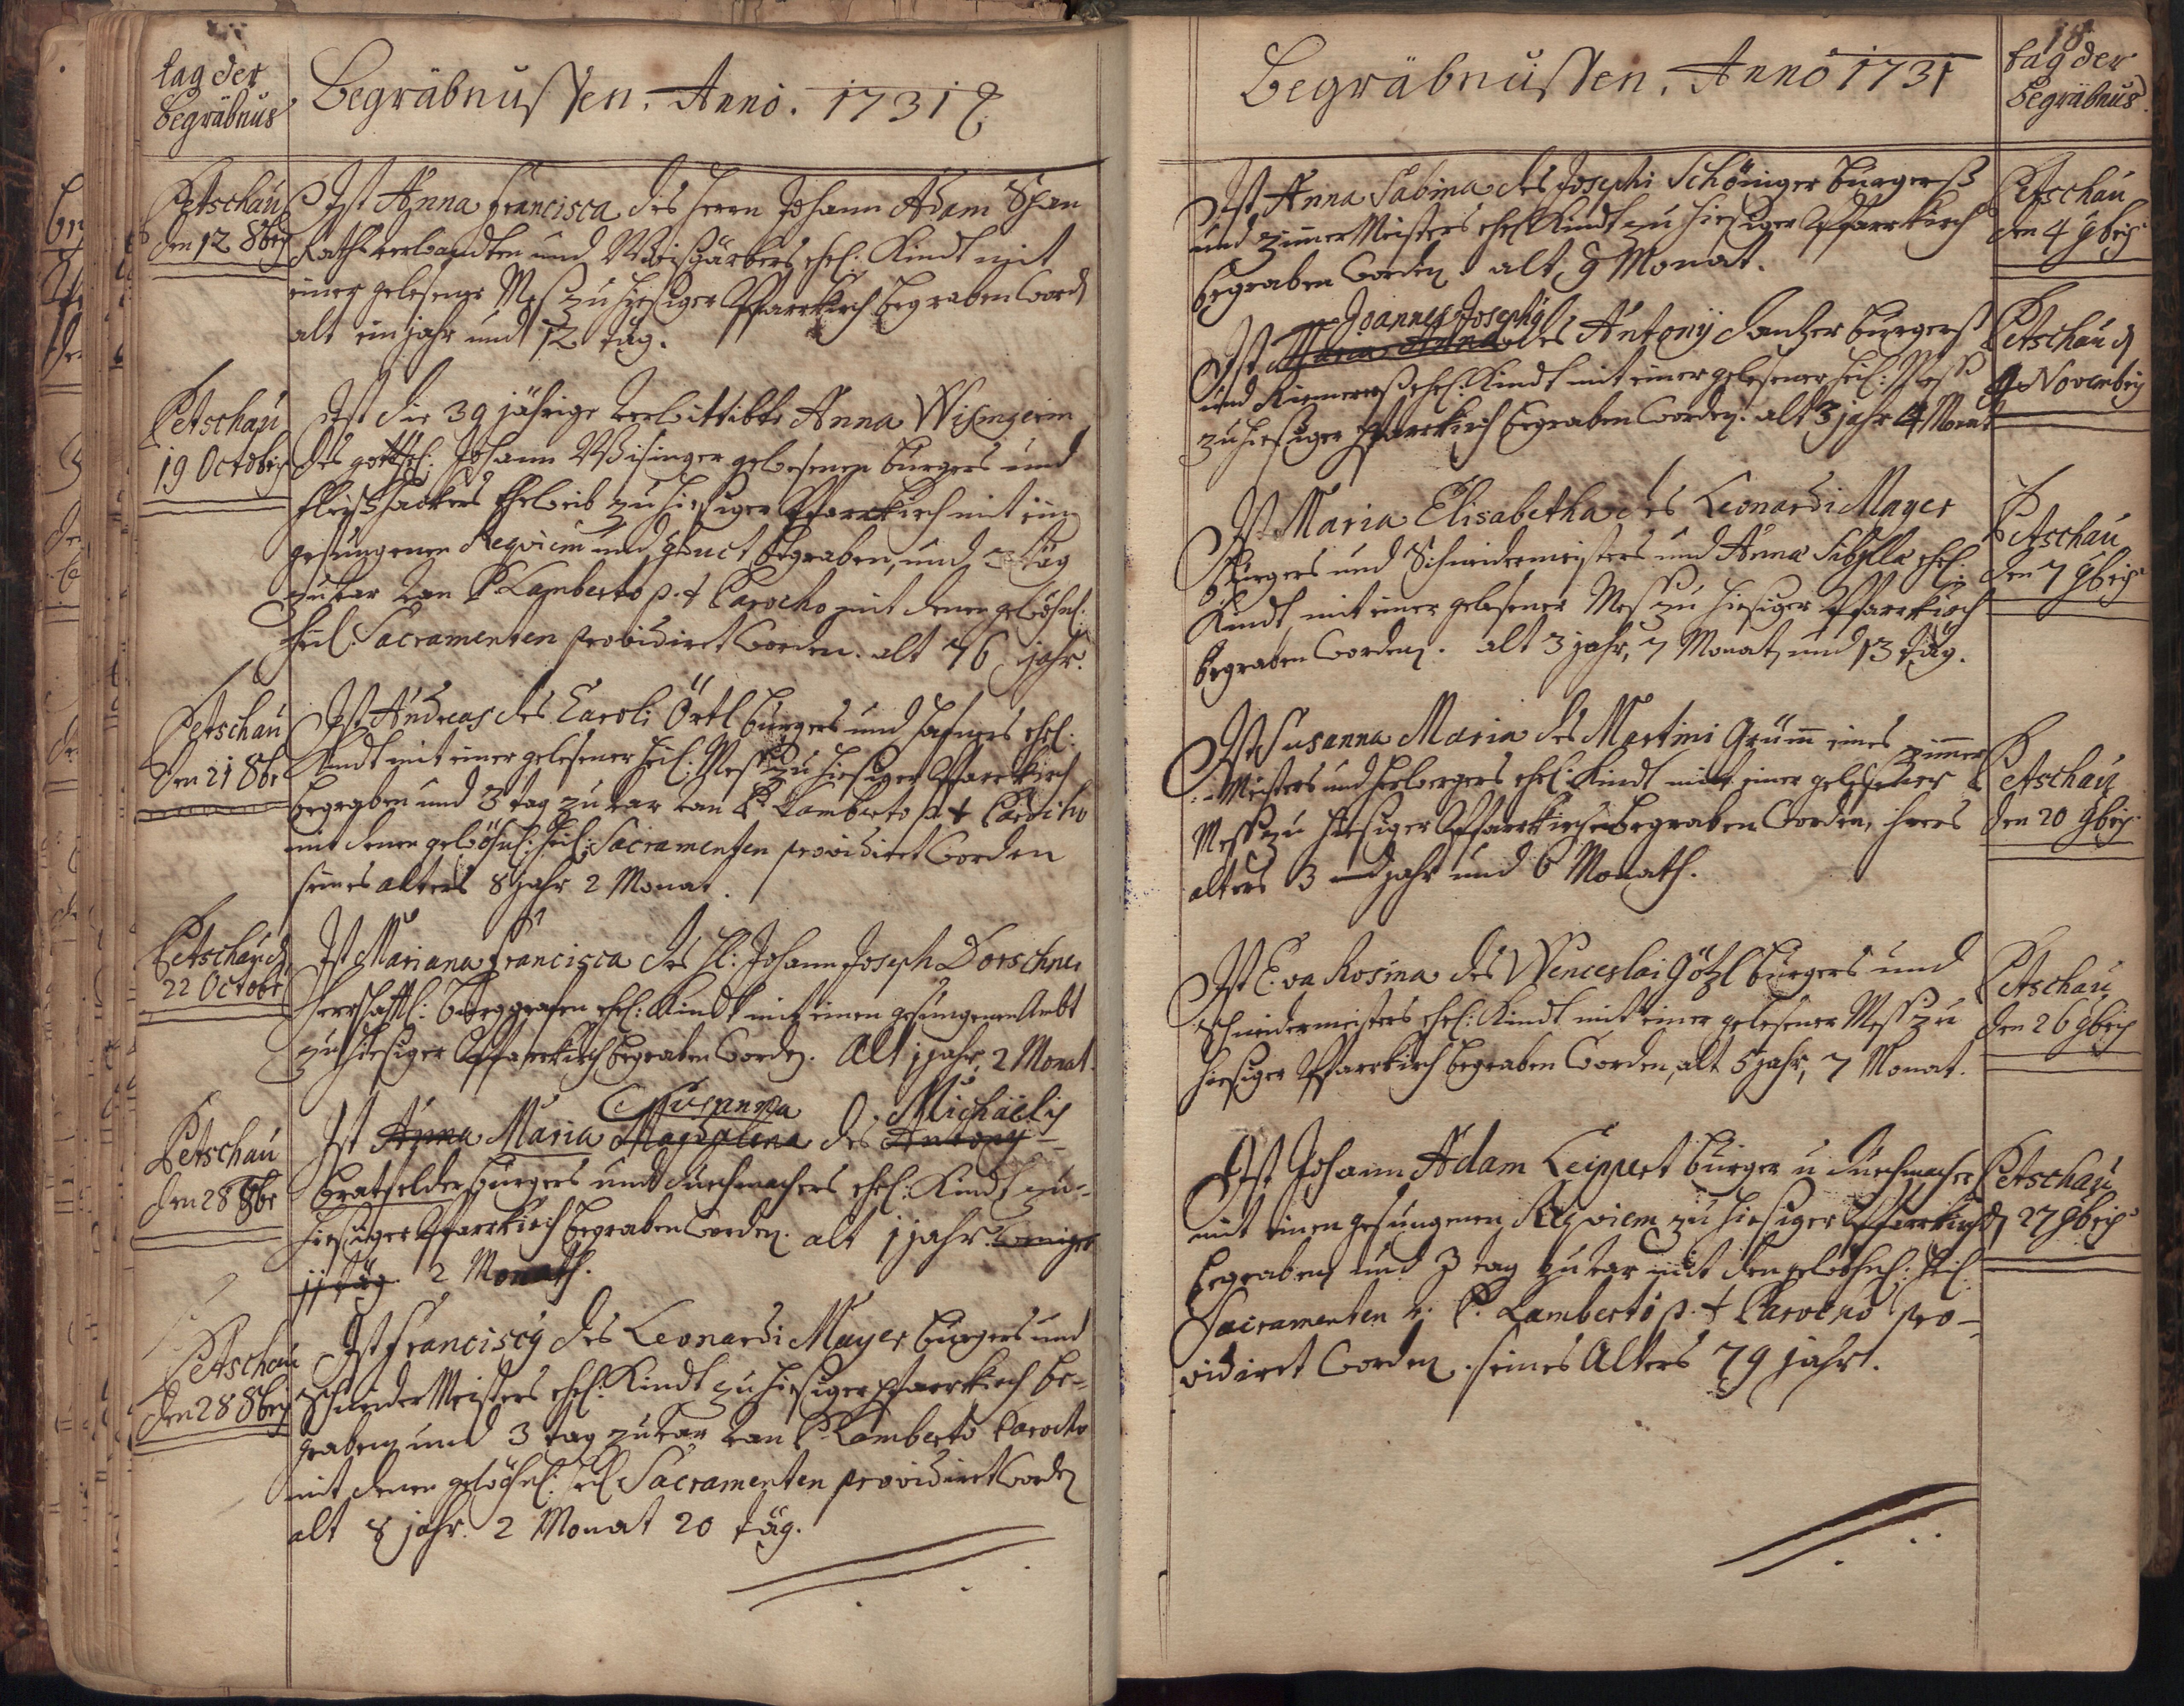 tag der
begräbnus
Begräbnussen. Anno. 1731
Petschau
den 12 8bris
Ist Anna Francisca des Herrn Johann Adam Span
Rathsverwandten und Weisgärbers ehel: Kindt mit
einer gelesene Mess zu hiesiger Pfarrkirch begraben word
alt ein jahr und 12 täg.
Petschau
19 Octobris
Ist die 39 jährige verwittibte Anna Wisingerin
des gottseel: Johann Wisinger gewesenen burgers und
fleischhackers Eheweib zu hiesiger Pfarrkirch mit ein
gesungenen Requiem und Conduct begraben, und 3 täg
zuvor von P. Lamberto p.t. Parocho mit denen gewöhnl:
heil: Sacramenten providiret worden. alt 76 jahr.
Petschau
den 21 8br
Ist Andreas des Caroli Örtl burgers und hafners ehel:
Kindt mit einer gelesener heil: Mess zu hiesiger Pfarrkirch
begraben und 3 tag zuvor von P. Lamberto p.t. Parocho
mit denen gewöhnl: heil: Sacramenten providiret worden
seines alters 8 jahr 2 Monat.
Petschau d
22 Octobr
Ist Mariana Francisca des H: Johann Joseph Dorschner
herrschaftl: burggrafen ehel: Kindt mit einen gesungenen Ambt
zu hiesiger Pfarrkirch begraben worden. Alt 1 jahr, 2 Monat.
Petschau
den 28 8br
Susanna Michaelis
Ist Anna Maria Magdalena des Antony
Bratfelder burgers und tuchmachers ehel: Kindt zu
hiesiger Pfarrkirch begraben worden. alt 1 jahr weniger
11 täg. 2 Monath.
Petschau
den 28 8bris
Ist Franciscus des Leonardi Mayer burgers und
Schneider Meisters ehel: Kindt zu hiesiger pfarrkirch be-
graben und 3 tag zuvor von P. Lamberto Parocho
mit denen gewöhnl: heil Sacramenten providiret worden
alt 8 jahr. 2 Monat 20 täg.
18
Begräbnussen, Anno 1731
tag der
begräbnus
Ist Anna Sabina des Josephi Schöniger burgerß
und zimmer Meisters ehel Kindt zu hiesiger Pfarrkirch
begraben worden. alt 9 Monat.
Petschau
den 4 9bris
Joannes Josephus
Ist Maria Anna des Antonij Danzer burgerß
und Riemerers ehel: Kindt mit einer gelesener heil: Mess
zu hiesiger Pfarrkirch begraben worden. alt 3 jahr 4 Monat
Petschau d
9 Novembris
Ist Maria Elisabetha des Leonardi Mayer
Burgers und Schneidermeisters und Anna Sibylla ehel:
Kindt, mit einer gelesener Mess zu hiesiger Pfarrkirch
begraben worden. alt 3 jahr, 7 Monat, und 13 täg.
Petschau
den 7 9bris
Ist Susanna Maria des Martini Grüm eines zimmer
Meisters und herbergers ehel: Kindt mit einer gelesener
Mess zu hiesiger Pfarrkirche begraben worden, ihres
alters 3 jahr und 6 Monath.
Petschau
den 20 9bris
Ist Eva Rosina des Wenceslai Götzl burgers und
schneidermeisters ehel: Kindt mit einer gelesener Mess zu
hiesiger Pfarrkirch begraben worden, alt 5 jahr, 7 Monat.
Petschau
den 26 9bris
Ist Johann Adam Leippert burger u tuchmacher
mit einen gesungenen Requiem zu hiesiger Pfarrkirch
begraben und 3 tag zuvor mit den gewöhnl: heil
Sacramenten v. P. Lamberto p.t. Parocho pro-
vidiret worden. seines Alters 79 jahr.
Petschau
d 27 9bris